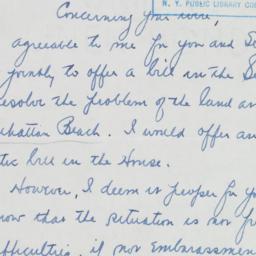 N. Y. PUBLIC LIBRARY CO
Concerning your wire,
agreeable to me for you and Se
jointly to offer a bill in the Se
resolve the problem of the land a
nhattan Beach. I would offer an
tic bill in the House.
However, I deem it proper for yo
now that the situation is not f
ifficulties, if not embarassmen